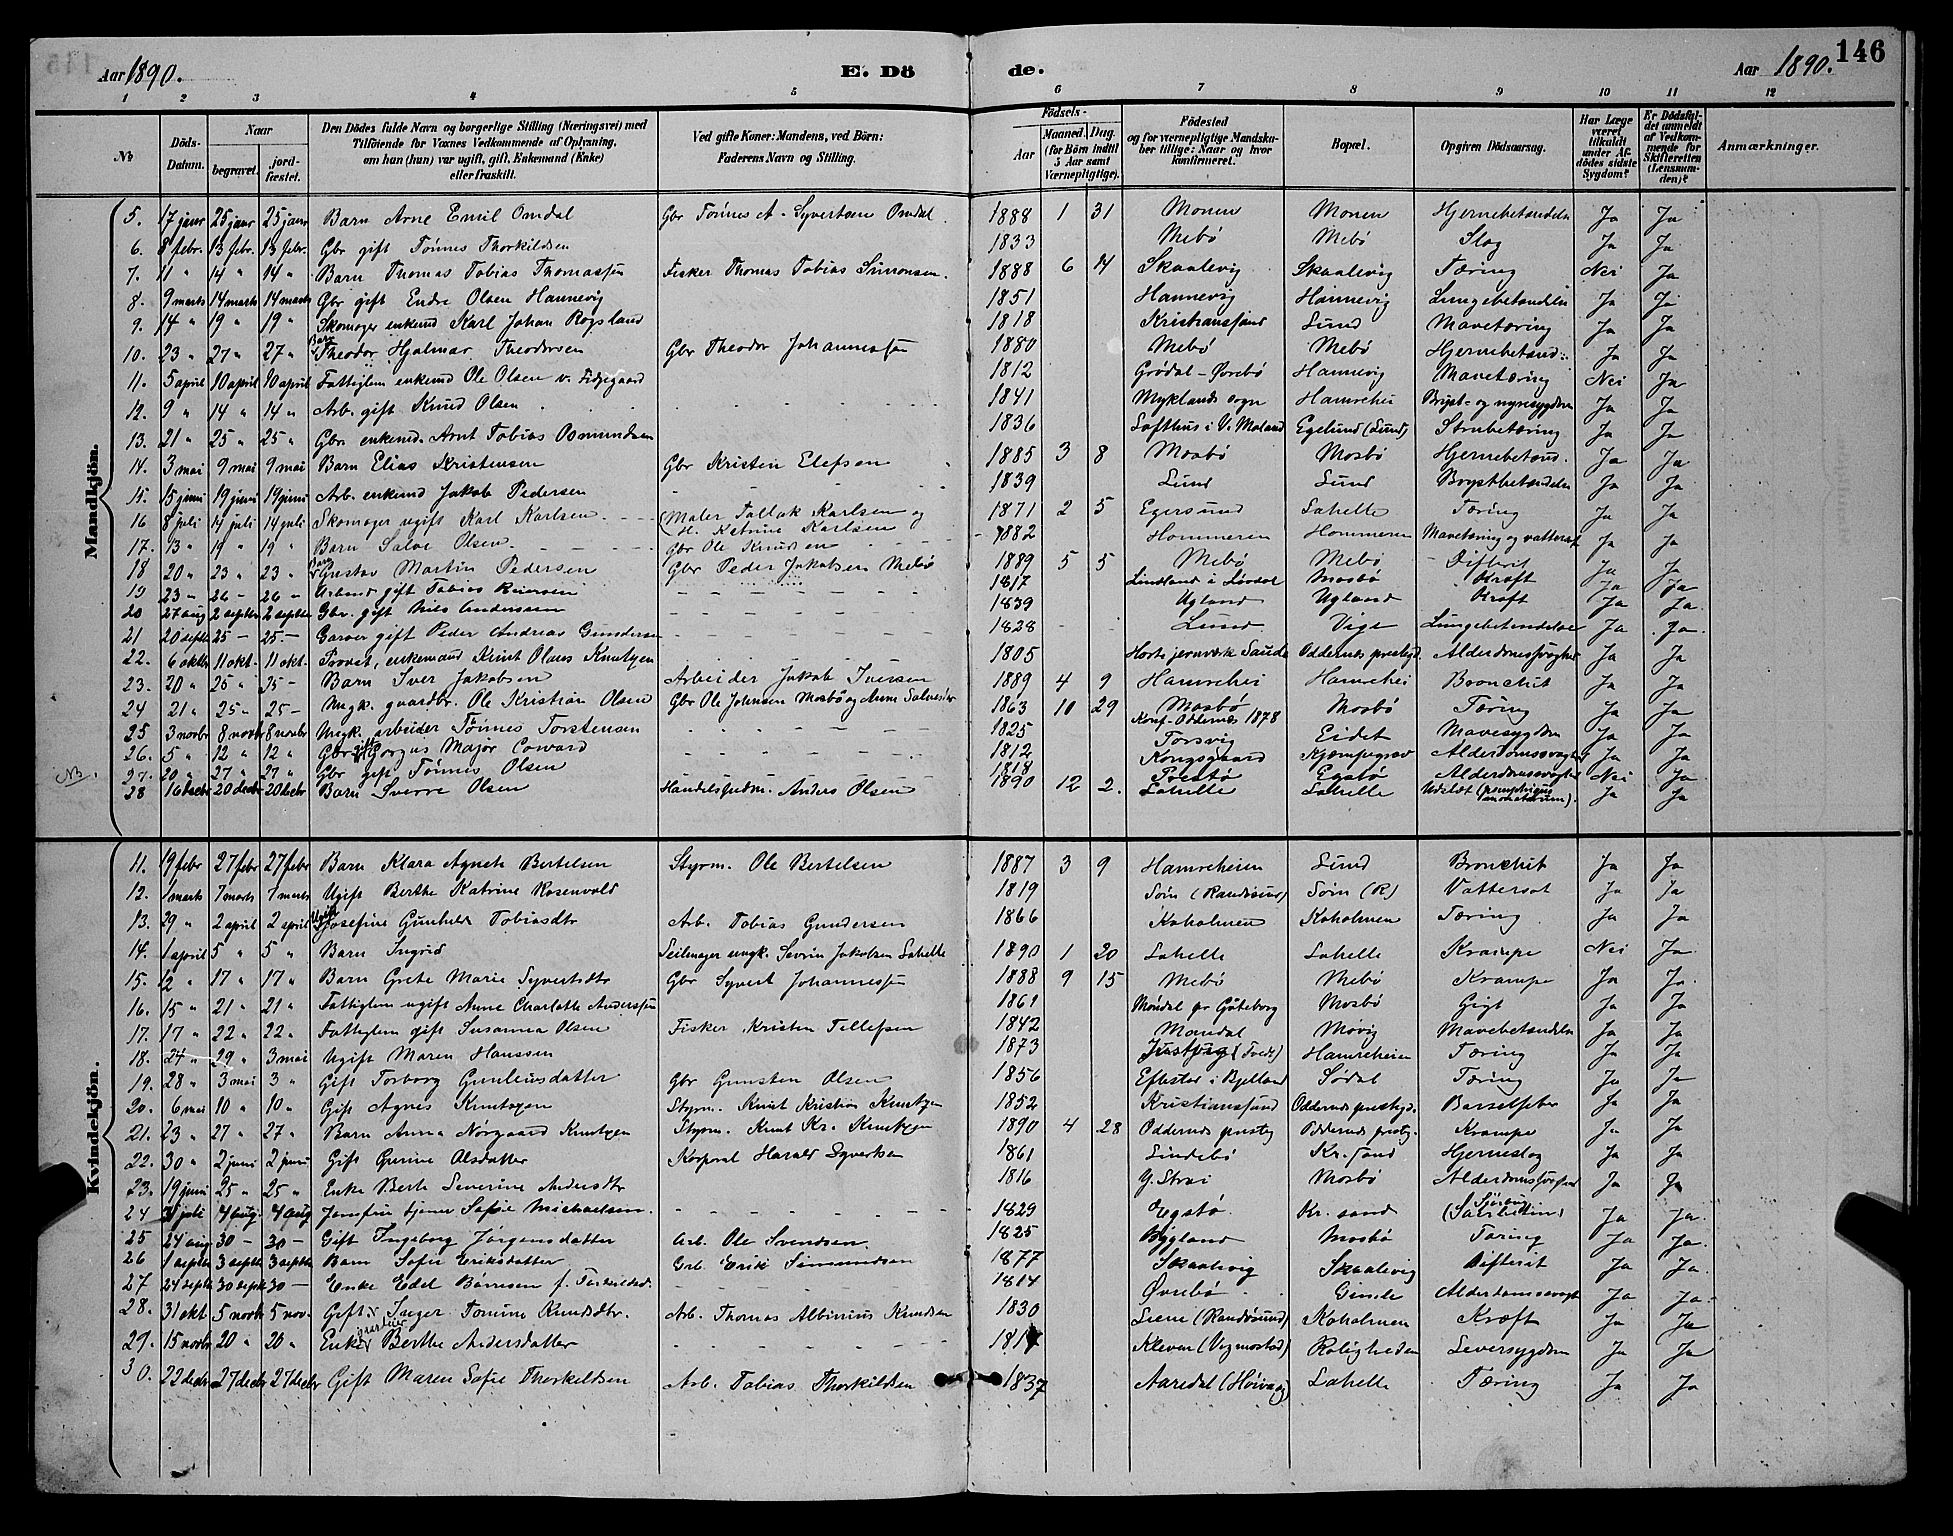 146
Aar 1890. E. Dö de. Aar 1890.
1 2 3 4 5 6 7 8 9 10 11 12
No Döds-Datum. Naar begravet. jord-fæstet. Den Dödes fulde Navn og borgerlige Stilling (Næringsvei) med Tilföiende for Voxnes Vedkommende af Oplysning, om han (hun) var ugift, gift, Enkemand (Enke) eller fraskilt. Ved gifte Koner: Mandens, ved Börn: Faderens Navn og Stilling. Födsels- Aar Maaned. Dag. (for Börn indtil 5 Aar samt Værnepligtige). Födested og for værnepligtige Mandskaber tillige: Naar og hvor konfirmeret. Bopæl. Opgiven Dödsaarsag. Har Læge været tilkaldt under Afdödes sidste Sygdom? Er Dödsfaldet anmeldt af Vedkommende for Skifteretten (Lensmanden)? Anmærkninger.
Mandkjön.
5. 17 janr 25 janr 25 janr Barn Arne Emil Omdal Gbr Tönnes A. Syvertsen Omdal. 1888 1 31 Monen Monen Hjernebetændelse Ja Ja
6. 8 febr. 13 febr. 13 febr. Gbr gift Tönnes Thorkildsen 1833 Mebö Mebö Slag Ja Ja
7. 11 " 14 " 14 " Barn Thomas Tobias Thomassen Fisker Thomas Tobias Simonsen. 1888 6 14 Skaalevig Skaalevig Tæring Nei Ja
8. 9 marts 14 marts 14 marts Gbr gift Endre Olsen Hannevig 1851 Hannevig Hannevig Lungebetændelse Ja Ja
9. 14 " 19 " 19 " Skomager enkemd Karl Johan Rogsland 1818 Kristianssand Lund Mavetæring Ja Ja
10. 23 " 27 " 27 " Barn Theodor Hjalmar Theodorsen Gbr Theodor Johannessen 1880 Mebö Mebö Hjernebetænd: Ja Ja
11. 5 april 10 april 10 april Fattiglem enkemd Ole Olsen v. Fidjegaard 1812 Grödal - Övrebö Hannevig Mavetæring Nei Ja
12. 9 " 14 " 14 " Arb. gift Knud Olsen 1841 Myklands sogn Hamrehei Bryst- og nyresygdom Ja Ja
13. 21 " 25 " 25 " Gbr enkemd. Arnt Tobias Osmundsen 1836 Lofthus i V. Moland Egelund (Lund) Strubetæring Ja Ja
14. 3 mai 9 mai 9 mai Barn Elias Kristensen Gbr Kristen Elefsen 1885 3 8 Mosbö Mosbö Hjernebetænd. Ja Ja
15. 15 juni 19 juni 19 juni Arb. enkemd Jakob Pedersen 1839 Lund Lund Brystbetændelse Ja Ja
16 8 juli 14 juli 14 juli Skomager ugift Karl Karlsen (Maler Tallak Karlsen og H. Katrine Karlsen 1871 2 5 Egersund Lahelle Tæring Ja Ja
17. 13 " 19 " 19 " Barn Salve Olsen Gbr Ole Knudsen 1882 Hommeren Hommeren Mavetæring og vattersot Ja Ja
18 20 " 23 " 23 " Barn Gustav Martin Pedersen Gbr Peder Jakobsen Mebö 1889 5 5 Mebö Mebö Difterit Ja Ja
19 23 " 26 " 26 " Arbmd gift Tobias Reiersen 1817 Lindland i Lövdal Mosbö Kræft Ja Ja
20 27 aug 2 septbr 2 septbr Gbr. gift Nils Anderssen 1839 Ugland Ugland Kræft Ja Ja
21 20 septbr 25 - 25 - Garver gift Peder Andreas Gundersen 1828 Lund Vige Lungebetændelse Ja Ja
22. 6 oktbr 11 okt. 11 okt. Provst, enkemand Knut Olaus Knutzen 1805 Oddernes prestegd. Alderdomssvaghed Ja Ja
23. 20 " 25 " 25 - Barn Iver Jakobsen Arbeider Jakob Iversen 1889 4 9 Hamrehei Hamrehei Bronchit Ja Ja
24 21 " 25 " 25 - Ungk. gaardbr. Ole Kristian Olsen Gbr Ole Johnsen Mosbö og Anne Salvesdtr 1863 10 29 Mosbö Konf. Oddernes 1878 Mosbö Tæring Ja Ja
25 3 novbr 8 novbr 8 novbr Ungk. arbeider Tönnes Torstensen 1825 Torsvig Eidet Mavesygdom Ja Ja
26. 5 " 12 " 12 " Gbr gift Jorgus Major Coward 1812 Kongsgaard Kjæmpegrav Alderdomssvaghed Ja Ja
NB. 27. 20 " 27 " 27 " Gbr gift Tönnes Olsen 1818 Prestö Egsbö Alderdomssvaghed Nei Ja
28 16 decbr 20 decbr 20 decbr Barn Sverre Olsen Handelsfuldm. Anders Olsen 1890 12 2. Lahelle Lahelle Udslæt (pemphigus neonatorum). Ja Ja
Kvindekjön.
11. 19 febr 27 febr 27 febr Barn Klara Agnete Bertelsen Styrm. Ole Bertelsen 1887 3 9 Hamreheien Lund Bronchit Ja Ja
12. 1 marts 7 marts 7 marts Ugift Berthe Katrine Rosenvold 1819 Söm (Randösund) Söm (R) Vattersot Ja Ja
13. 29 " 2 april 2 april Ugift Josefine Gunhilde Tobiasdtr Arb. Tobias Gundersen 1866 Koholmen Koholmen Tæring Ja Ja
14. 1 april 5 " 5 " Barn Ingrid Seilmager ungk. Severin Jakobsen Lahelle 1890 1 20 Lahelle Lahelle Krampe Nei Ja
15. 12 " 17 " 17 " Barn Grete Marie Syvertsdtr Gbr Syvert Johannessen 1888 9 15 Mebö Mebö Krampe Ja Ja
16. 15 " 21 " 21 " Fattiglem ugift Anne Charlotte Anderssen 1861 Möndal pr Göteborg Mosbö Gigt Ja Ja
17. 17 " 22 " 22 " Fattiglem gift Susanna Olsen Fisker Kristen Tellefsen 1842 Mandal Mövig Mavebetændelse Ja Ja
18. 24 " 29 " 3 mai Ugift Maren Hanssen 1873 Justvig (Tvedt) Hamreheien Tæring Ja Ja
19. 28 " 3 mai 3 " Gift Torborg Gunleusdatter Gbr Gunsten Olsen 1856 Eftestad i Bjelland Södal Tæring Ja Ja
20. 6 mai 10 " 10 " Gift Agnes Knutzen Styrm. Knut Kristian Knutzen 1852 Kristianssand Oddernes prestgd. Barselfeber Ja Ja
21. 23 " 27 " 27 " Barn Anna Nörgaard Knutzen Styrm. Knut Kr. Knutzen 1890 4 28 Oddernes prestg Oddernes prestg. Krampe Ja Ja
22. 30 " 2 juni 2 juni Gift Gurine Alsdatter Korporal Harald Syvertsen 1861 Lindebö Kr. sand Hjerneslag Ja Ja
23. 19 juni 25 " 25 " Enke Berte Severine Andersdtr 1816 Y. Strai Mosbö Ja Ja
24 31 juli 4 aug. 4 aug Jomfru tjener Sofie Michaelsen 1829 Egsbö Kr. sand Ja Ja
25 24 aug 30 - 30 - Gift Ingeborg Jörgensdatter Arb. Ole Svendsen 1825 Bygland Mosbö Tæring Ja Ja
26 1 septbr 3 septbr 3 septbr Barn Sofie Eriksdatter Grb. Erik Simundsen 1877 Skaalevig Skaalevig Difterit Ja Ja
27 24 septbr 30 septbr 30 - Enke Edel Börresen f. Torkildsd. 1814 Övrebö Gimle Alderdomssvagh Ja Ja
28. 31 okt 5 novbr 5 nov. Gift Inger Tomine Knudsdtr. Arb. Thomas Albinius Knudsen 1830 Liene (Randösund) Koholmen Kræft Ja Ja
29. 15 novbr 20 " 20 " Enke Berthe Andersdatter Kleven (Vigmostad) Roligheden Leversygdom Ja Ja
30. 22 decbr 27 decbr 27 decbr Gift Maren Sofie Thorkildsen Arb. Tobias Thorkildsen 1837 Aaredal (Höivaag) Lahelle Tæring Ja Ja